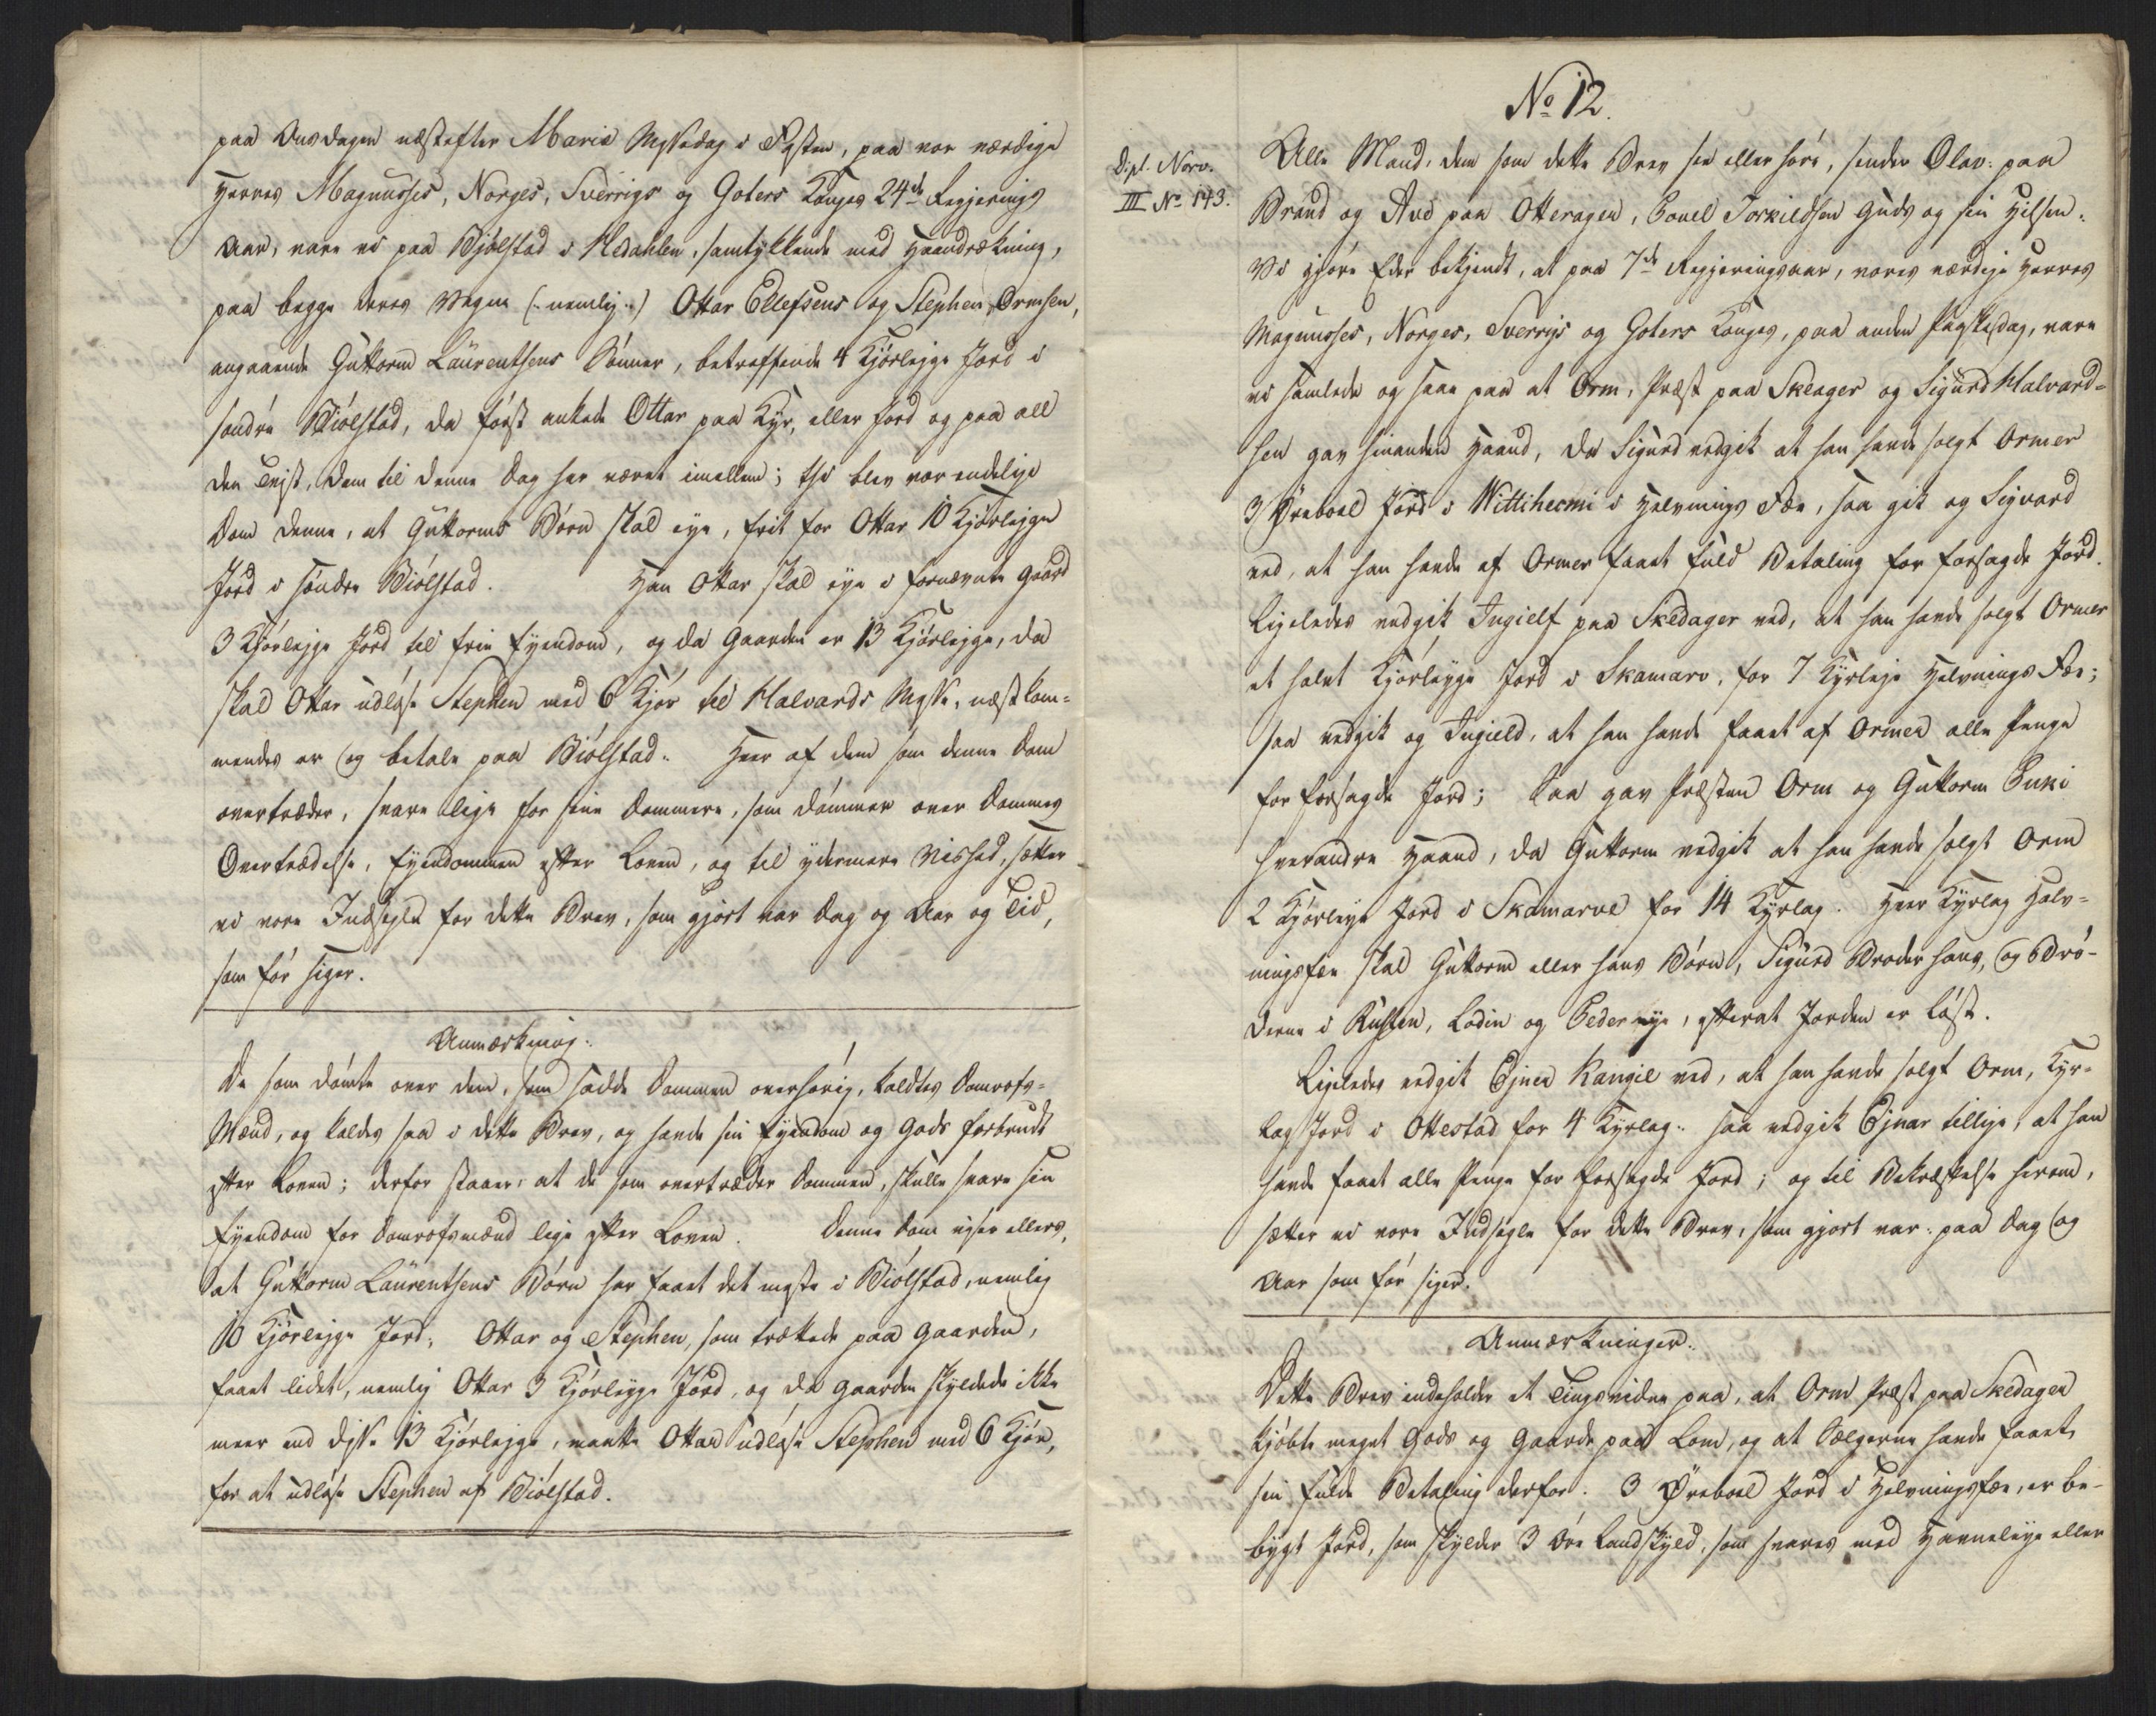 paa Onsdagen næstefter Mariæ Messedag i Fasten, paa vor værdige
Herres Magnusses, Norges, Sverrigs og Goters Konges 24de Regjerings
Aar, vare vi paa Bjølstad i Hedahlen, samtykkende med Haandrækning,
paa begge deres Vegne (: nemlig :) Ottar Ellefsens og Stephen Ormsen,
angaaende Guttorm Laurentsens Sønner, betreffende 4 Kjørlejge Jord i
søndre Biølstad, da først ankede Ottar paa Kyr, eller Jord og paa all
den Tvist, dem til denne Dag har været imellem; thi blev vor endelige
Dom denne, at Guttorms Børn skal eye, frit for Ottar 10 Kjørlejge
Jord i søndre Biølstad. Han Ottar skal eye i fornævnte Gaard
3 Kjørlejge Jord til frie Eyendom, og da Gaarden er 13 Kjørlejge, da
skal Ottar udløse Stephen med 6 Kjør til Halvards Messe, næstkom-
mendes er og betale paa Biølstad. Hver af dem som denne Dom
overtræder, svare lige for sine Dommere, som dømmer over Dommes
Overtrædelse, Eyendommen efter Loven, og til ydermere Vished, sætter
vi vore Indsegle for dette Brev, som gjort var Dag og Aar og Tid,
som før siger.
Anmærkning.
De som dømte over dem, som sadde Dommen overhørig, kaldtes Domrofs-
Mænd, og kaldes saa i dette Brev, og havde sin Eyendom og Gods forbrudt
efter Loven; derfor staaer, at de som overtræder Dommen, skulle svare sin
Eyendom for Domrofsmænd lige efter Loven. Denne Dom viser ellers,
at Guttorm Laurentsens Børn har faaet det meste i Biølstad, nemlig
10 Kjørlejge Jord, Ottar og Stephen, som trættede paa Gaarden,
faaet lidet, nemlig Ottar 3 Kjørleyge Jord, og da Gaarden skyldede ikke
meer end disse 13 Kjørlejge, maatte Ottar udløse Stephen med 6 Kjør,
for at udløse Stephen af Biølstad.
No 12.
Dipl. Norv.
III No 143.
Alle Mænd, dem som dette Brev see eller høre, sender Olav paa
Brand og Avd paa Otteragen, Povel Torkildsen Guds og sin Hilsen.
Vi gjøre Eder bekjendt, at paa 7de Regjeringsaar, vores værdige Herres
Magnusses, Norges, Sverrigs og Goters Konges, paa anden Paaskedag, vare
vi samlede og saae paa at Orm, Præst paa Skeager og Sigurd Halvard-
sen gav hinanden Haand, da Sigurd vedgik at han havde solgt Ormer
3 Øreboel Jord i Wittihecmi i Helvnings Fæe, saa gik og Sigvard
ved, at han havde af Ormer faaet fuld Betaling for forsagde Jord.
Ligeledes vedgik Ingielf paa Skedager ved, at han havde solgt Ormer
et halvt Kjørleyge Jord i Skamarv, for 7 Kyrleje Helvnings Fæe;
saa vedgik og Ingield, at han havde faaet af Ormer alle Penge
for forsagde Jord; Saa gav Præsten Orm og Guttorm Punki
hverandre Haand, da Guttorm vedgik at han havde solgt Orm
2 Kjørleye Jord i Skamarve for 14 Kyrlag. Hver Kyrlag Helv-
ningsfæe skal Guttorm eller hans Børn, Sigurd Broder hans, og Brø-
drene i Rusten, Lodin og Peder eye, efterat Jorden er løst.
Ligeledes vedgik Ejner Rangil ved, at han havde solgt Orm, Kyr-
lag Jord i Ottestad for 4 Kyrlag. saa vedgik Ejnar tillige, at han
havde faaet alle Penge for forsagde Jord; og til Bekræftelse herom,
sætter vi vore Indsegle for dette Brev, som gjort var paa Dag og
Aar som før siger.
Anmærkninger.
Dette Brev indeholder et Tingsvidne paa, at Orm Præst paa Skedager
kjøbte meget Gods og Gaarde paa Lom, og at Sælgerne havde faaet
sin fulde Betaling derfor. 3 Øreboel Jord i Helvningsfæe, er be-
bygt Jord, som skylder 3 Øre Landskyld, som svares med Havneleye eller